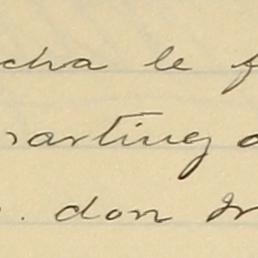 cha le f
arting
. don